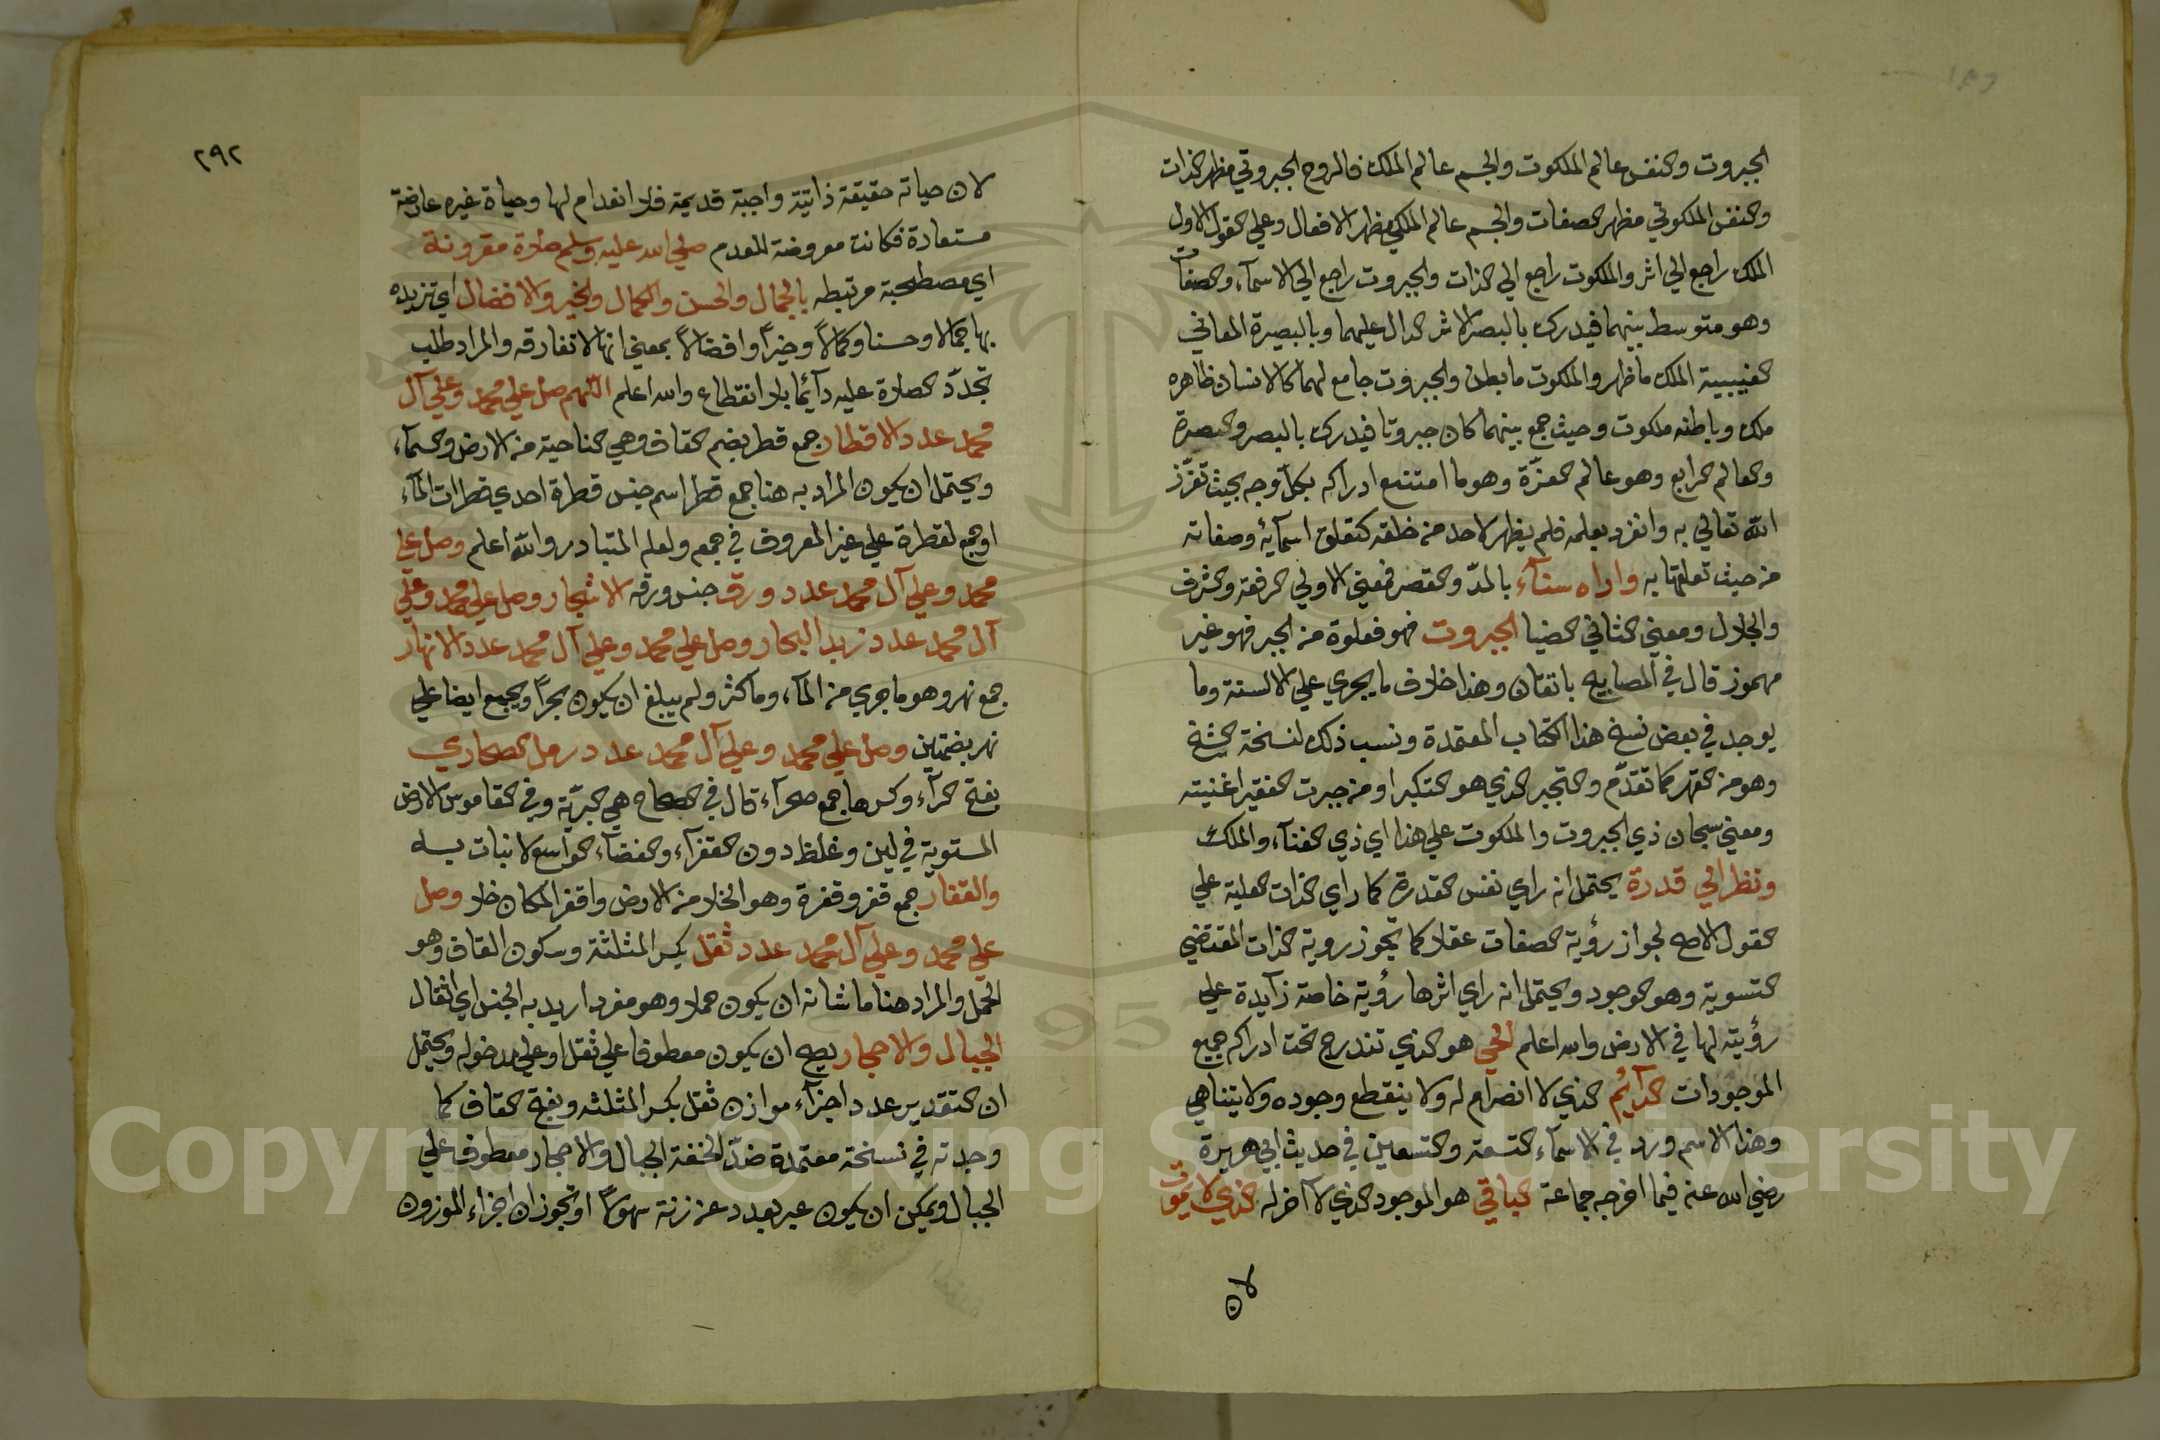 الجبروت والنفس عالم الملكوت والجسم عالم الملك فالروح الجبروتي مظهر الذات
والنفس الملكوتي مظهر الصفات والجسم عالم الملكي مظهر الافعال وعلي القول الاول
الملك راجع الي اثر والملكوت راجع الي الذات والجبروت راجع الي الاسمآء والصفات
وهو متوسط بينهما فيدرك بالبصر الاثر الدال عليهما وبالبصيرة المعاني
الغيبية الملك ما ظهر والملكوت ما بطن والجبروت جامع لهما كالانسان ظاهره
ملك وباطنه ملكوت وحيث جمع بينهما كان جبروتا فيدرك بالبصر والبصيرة
والعالم الرابع وهو عالم العزّة وهو ما امتنع ادراكه بكل وجه بحيث تعزّز
الله تعالي به وانفرد بعلمه فلم يظهر لاحد من خلقه كتعلق اسمآئه وصفاته
من حيث تعلقها به واراه سنآء بالمدّ والقصر فمعني الاولي الرفعة والشرف
والجلال ومعني الثاني الضيا الجبروت فهو فعلوة من الجبر فهو غير
مهموز قال في المصابيح باتفاق وهذا خلاف ما يجري علي الالسنة وما
يوجد في بعض نسخ هذا الكتاب المعتمدة ونسب ذلك لنسخة الشيخ
وهو من القهر كما تقدّم والتجبر الذي هو التكبر او من جبرت الفقير اغنيته
ومعني سبحان ذي الجبروت والملكوت علي هذا اي ذي الغنآء والملك
ونظر الي قدرة يحتمل انه راي نفس القدرة كما راي الذات العلية علي
القول الاصح لجواز رؤية الصفات عقلا كما تجوز روية الذات المقتضي
التسوية وهو الوجود ويحتمل انه راي اثرها رؤية خاصة زآيدة علي
رؤيته لها في الارض والله اعلم الحي هو الذي تندرج تحت ادراكه جميع
الموجودات الدآيم الذي لا انصرام له ولا ينقطع وجوده ولا يتناهي
وهذا الاسم ورد في الاسمآء التسعة والتسعين في حديث ابي هريرة
رضي الله عنه فيما اخرجه جماعة الباقي هو الموجود الذي لا آخر له الذي لا يموت
لان
٢٩٢
لان حياته حقيقة ذاتية واجبة قديمة فلا انعدام لها وحياة غيره عارضة
مستعارة فكانت معروضة للعدم صلي الله عليه وسلم صلاة مقرونة
اي مصطحبة مرتبطه بالجمال والحسن والكمال والخير والافضال اي تزيده
بها جمالا وحسنا وكمالاً وخيراً وافضالاً بمعني انها لا تفارقه والمراد طلب
تجدّد الصلاة عليه دآئما بلا انقطاع والله اعلم اللهم صل علي محمد وعلي آل
محمد عدد الاقطار جمع قطر بضم القاف وهي الناحية من الارض والسمآء
ويحتمل ان يكون المراد به هنا جمع قطر اسم جنس قطرة احدي قطرات المآء
او جمع لقطرة علي غير المعروف في جمعه ولعلم المتبادر والله اعلم وصل علي
محمد وعلي آل محمد عدد ورق جنس ورقه الاشجار وصل علي محمد وعلي
آل محمد عدد زبد البحار وصل علي محمد وعلي آل محمد عدد الانهار
جمع نهر وهو ما جري من المآء وما كثر ولم يبلغ ان يكون بحراً ويجمع ايضا علي
نهر بضمتين وصل علي محمد وعلي آل محمد عدد رمل الصحاري
بفتح الرآء وكسرها جمع صحرآء قال في الصحاح هي البريّة وفي القاموس الارض
المستوية في لين وغلظ دون القفرآء والفضآء الواسع لا نبات به
والقفار جمع قفر وقفرة وهو الخلا من الارض واقفر المكان خلا وصل
علي محمد وعلي آل محمد عدد ثقل بكسر المثلثة وسكون القاف وهو
الحمل والمراد هنا ما شانه ان يكون حملا وهو مفرد اريد به الجنس اي اثقال
الجبال والاحجار يصح ان يكون معطوفا علي ثقل او علي مدخوله ويحتمل
ان التقدير عدد اجزآء موازن ثقل بكسر المثلثه وبفتح القاف كما
وجدته في نسخة معتمدة ضدّ الخفة الجبال والاحجار معطوف علي
الجبال ويمكن ان يكون عبر بعدد عن زنة سهواً او تجوزان اجزاء الموزون
Copyright © King Saud University